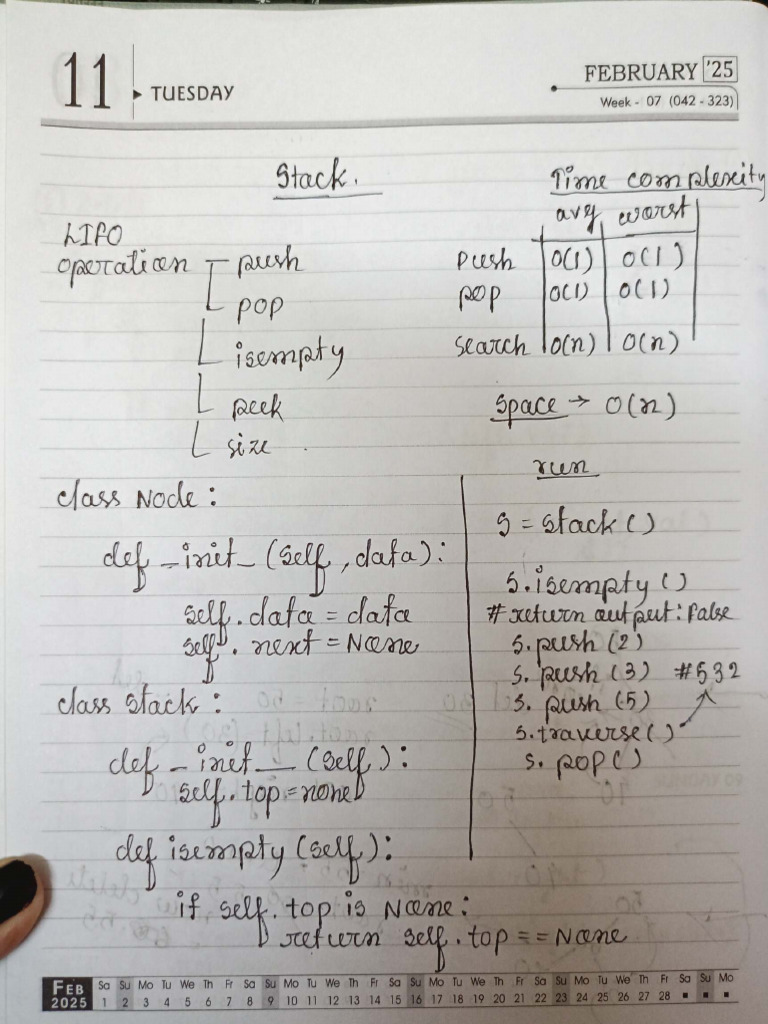 11
TUESDAY
FEBRUARY '25
Week - 07 (042 - 323)
Stack.
Time complexity
avg worst
LIFO
operation push
pop
isempty
peek
size
push O(1) O(1)
pop O(1) O(1)
search O(n) O(n)
Space → O(n)
class Node:
def _init_ (self, data):
self.data = data
self.next = None
class stack:
def _init__ (self):
self.top = none
def isempty (self):
if self.top is None:
return self.top == None
run
S = stack ()
s.isempty ()
# return output: False
s.push (2)
s. push (3) #532
s. push (5)
s.traverse ()
s. pop ()
FEB
2025
Sa Su Mo Tu We Th Fr Sa Su Mo Tu We Th Fr Sa Su Mo Tu We Th Fr Sa Su Mo Tu We Th Fr Sa Su Mo
1 2 3 4 5 6 7 8 9 10 11 12 13 14 15 16 17 18 19 20 21 22 23 24 25 26 27 28 ■ ■ ■